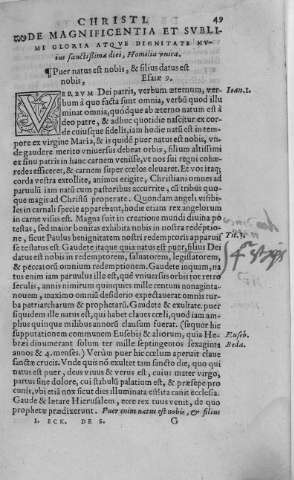 CHRISTI. 49
DE MAGNIFICENTIA ET SVBLI-
MI GLORIA ATQVE DIGNITATE HV-
ius sanctissimæ diei, Homilia vnica.
¶ Puer natus est nobis, & filius datus est
nobis, Esaiæ 9.
VERBVM Dei patris, verbum æternum, ver- Ioan. 1.
bum à quo facta sunt omnia, verbũ quod illu
minat omnia, quodque ab æterno natum est à
deo patre, & adhuc quotidie nascitur ex cor-
de cuiusque fidelis, iam hodie natũ est in tem-
pore ex virgine Maria, & is quidẽ puer natus est nobis, vn-
de gaudere meritò vniuersus debeat orbis, filium altissimi
ex sinu patris in hanc carnem venisse, vt nos sui regni cohæ-
redes efficeret, & carnem super cœlos eleuaret. Et vos itaq;
corda vestra extollite, animos erigite, Christiani omnes ad
paruulũ iam natũ cum pastoribus accurrite, cũ tribus quo-
que magis ad Christũ properate. Quondam angeli visibi-
les in carnali specie apparebant, hodie etiam rex angelorum
in carne visus est. Magna fuit in creatione mundi diuina po
testas, sed maior bonitas exhibita nobis in nostra redẽptio-
ne, sicut Paulus benignitatem nostri redemptoris apparuis Tit. 3.
se testatus est. Gaudete itaque quia natus est puer, filius Dei
datus est nobis in redemptorem, saluatorem, legislatorem,
& peccatorũ omnium redemptionem. Gaudete inquam, na
tus enim iam paruulus ille est, quẽ vniuersus orbis tot retrò
seculis, annis nimirum quinquies mille centum nonaginta-
nouem, maximo omniũ desiderio expectauerat omnis tur-
ba patriarcharum & prophetarũ. Gaudete & exultate, puer
siquidem ille natus est, qui habet claues cœli, quod iam am-
plius quinque millibus annorũ clausum fuerat. (sequor hic
supputationem communem Eusebij & aliorum, quia He- Euseb.
bræi dinumerant solum ter mille septingentos sexaginta Beda.
annos & 4. menses.) Verùm puer hic cœlum aperuit claue
sanctæ crucis. Vnde quis nõ exultet tam sancto die, quo qui
natus est puer, deus viuus & verus est, cuius mater virgo,
partus sine dolore, cui stabulũ palatium est, & præsepe pro
cunis, vbi etiã nox sicut dies illuminata exstitit canit ecclesia.
Gaude & lætare Hierusalem, ecce rex tuus venit, de quo
prophetæ prædixerunt. Puer enim natus est nobis, & filius
I. ECK. DE S. G